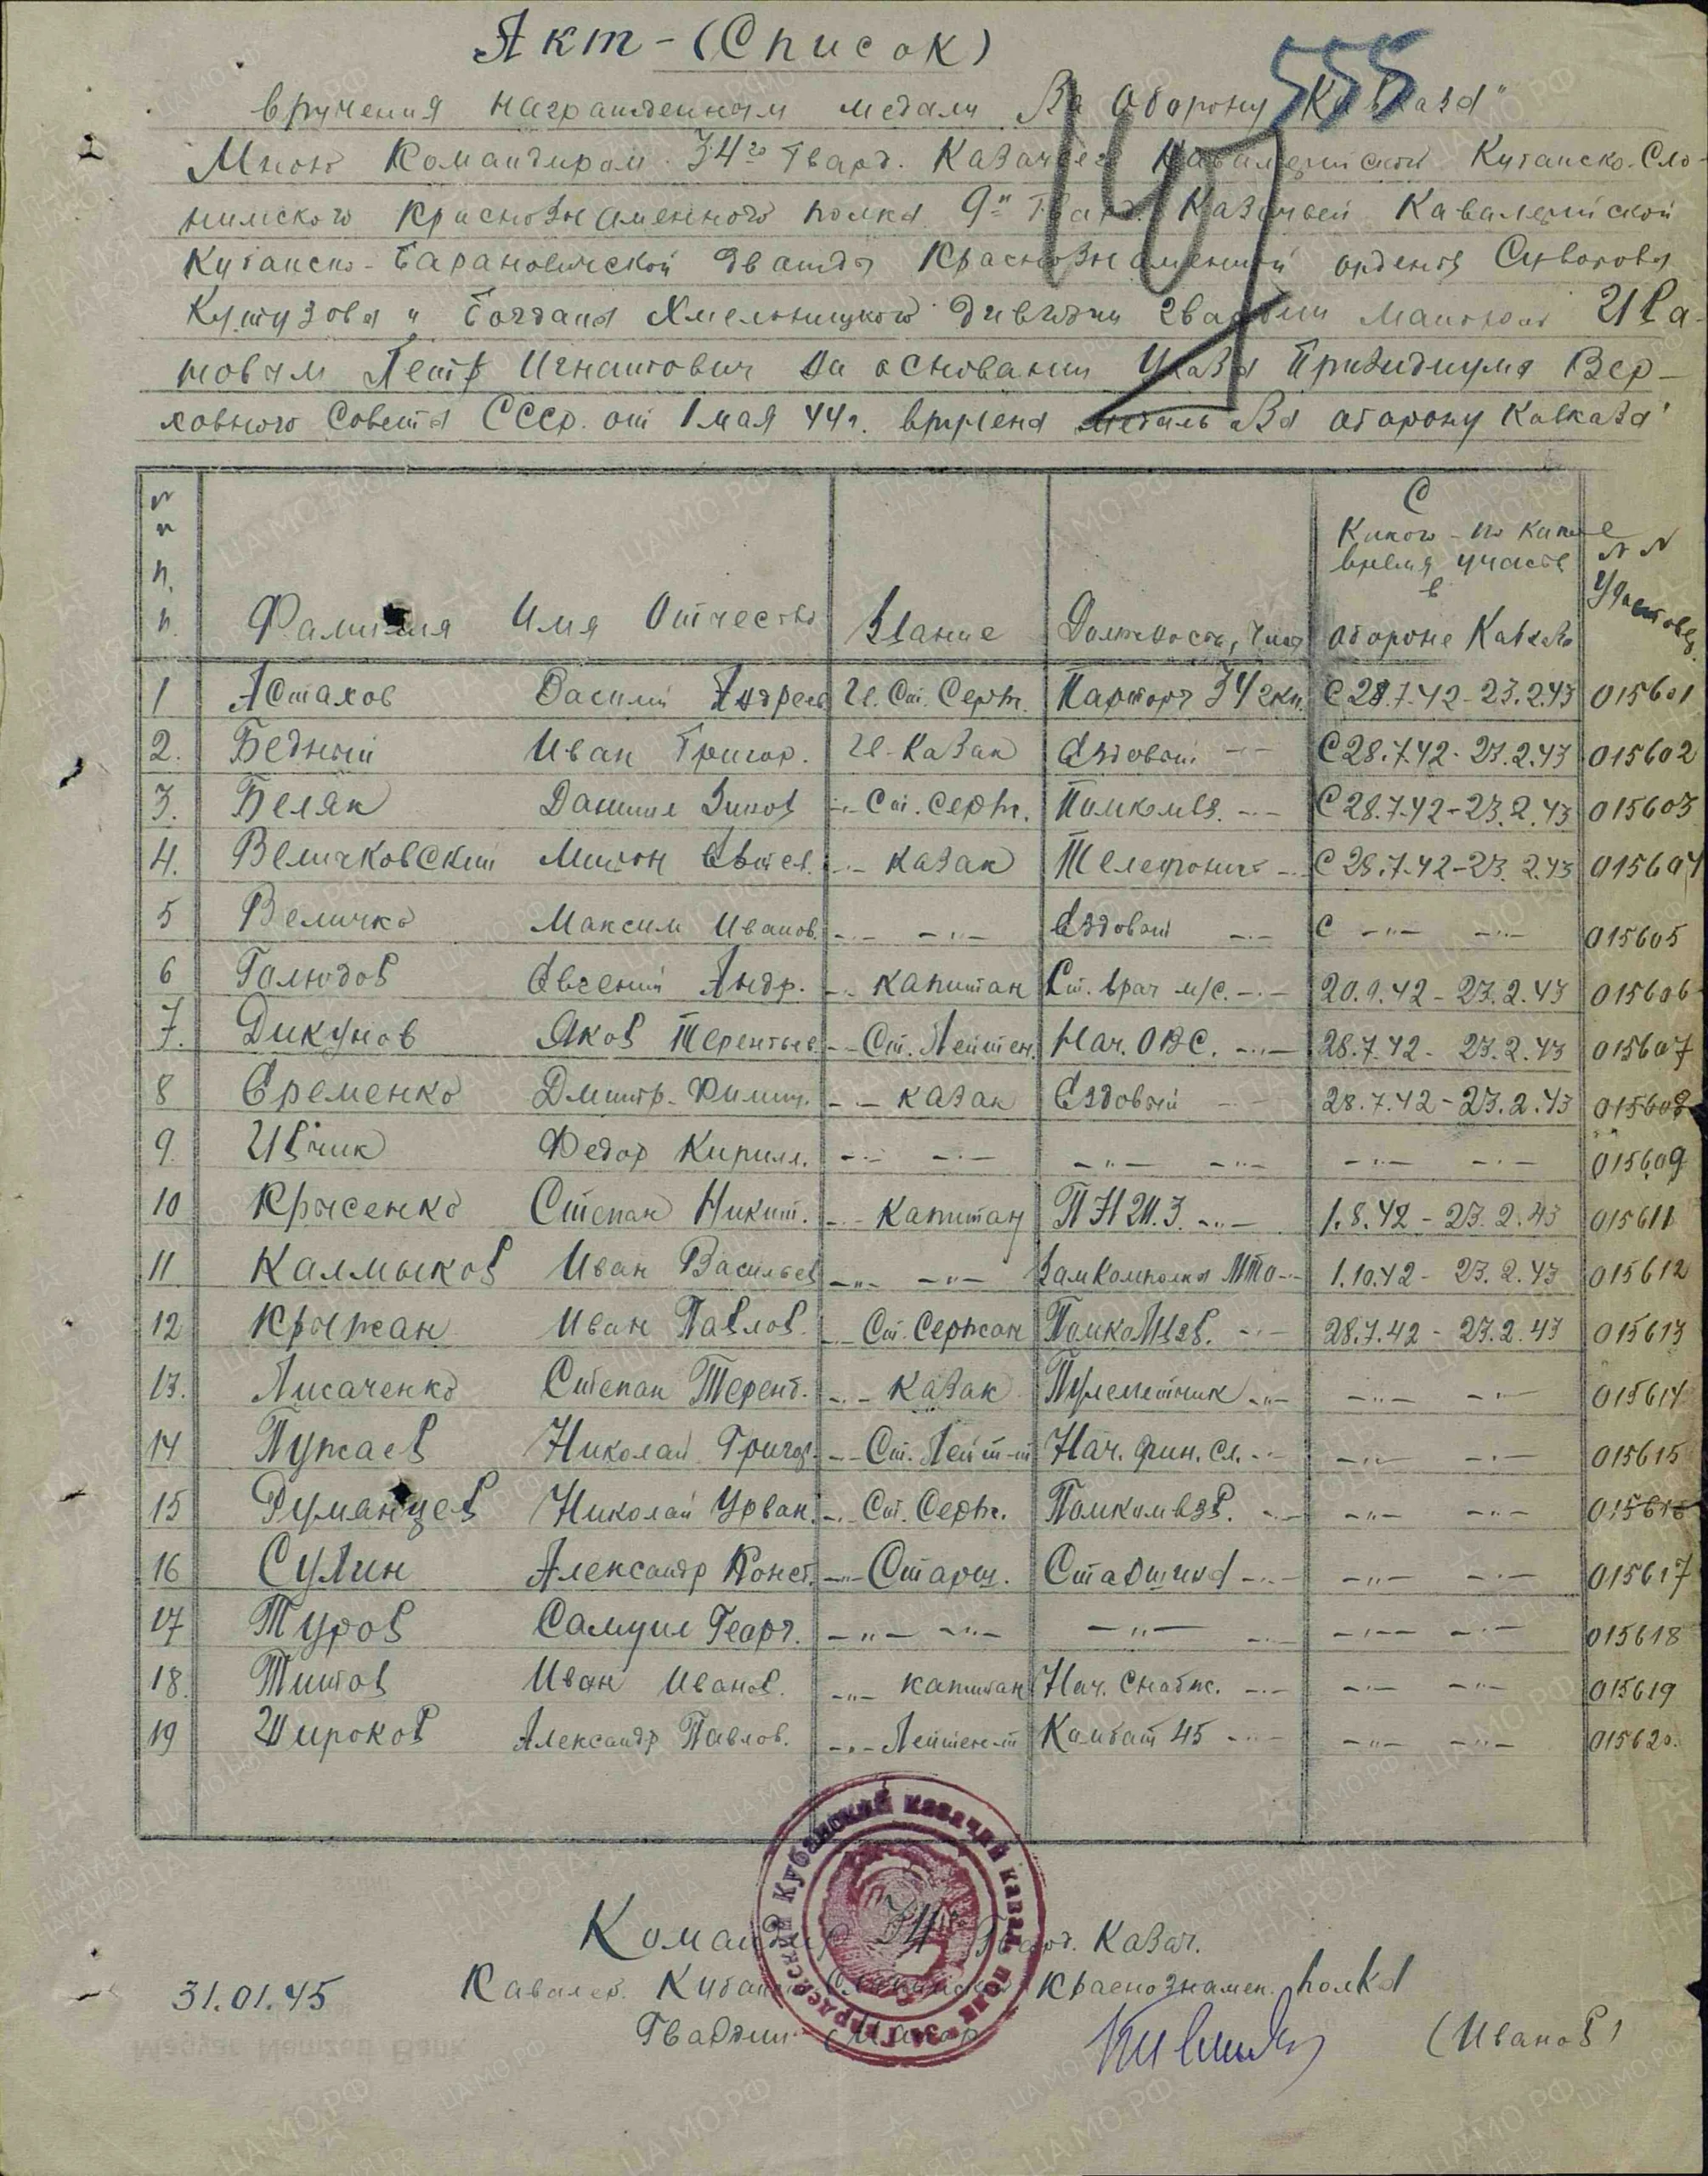 Акт - (Список)
555
вручения награжденным медали "За оборону Кавказа"
Мною Командиром 34го Гвард. Казачьего Кавалерийского Кубанско-Сло-
нимского Краснознаменного полка 9й Гвард. Казачьей Кавалерийской
Кубанско-Барановичской дважды Краснознаменной ордена Суворова
Кутузова и Богдана Хмельницкого дивизии гвардии майором Ива-
новым Петр Игнатович на основании Указа Президиума Вер-
ховного Совета СССР. от 1 мая 44г. вручена медаль "За оборону Кавказа"
№№ п.п. Фамилия Имя Отчество Звание Должность, часть С какого - по какое время участв в обороне Кавказа №№ Удостовер.
1 Астахов Василий Андреев Г. Ст. Серж. Парторг 34 гкп. С 28.7.42 - 23.2.43 015601
2. Бедный Иван Григор. Г. Казак Ездовой -"- С 28.7.42 - 23.2.43 015602
3. Беляк Даниил Зинов -"- Ст. Серж. Помкомвз. -"- С 28.7.42 - 23.2.43 015603
4. Величковский Митон Евтев. -"- Казак Телефонист -"- С 28.7.42 - 23.2.43 015604
5 Величко Максим Иванов. -"- -"- Ездовой -"- С -"- -"- 015605
6 Голюдов Евгений Андр. -"- капитан Ст. врач м/с. -"- 20.9.42 - 23.2.43 015606
7. Дикунов Яков Терентьев. -"- Ст. Лейтен. Нач. ОВС. -"- 28.7.42 - 23.2.43 015607
8 Еременко Дмитр. Филип. -"- казак Ездовый -"- 28.7.42 - 23.2.43 015608
9. Ивчик Федор Кирилл. -"- -"- -"- -"- -"- -"- 015609
10 Крысенко Степан Никит. -"- Капитан ПНШ.3. -"- 1.8.42 - 23.2.43 015611
11 Калмыков Иван Васильев -"- -"- Зам Комполка МТО -"- 1.10.42 - 23.2.43 015612
12 Крыжан Иван Павлов. -"- Ст. Сержан Помкомвзв. -"- 28.7.42 - 23.2.43 015613
13. Лисаченко Степан Терент. -"- Казак Пулеметчик -"- -"- -"- 015614
14 Пужаев Николай Григор. -"- Ст. Лейт-т Нач. фин. сл. -"- -"- -"- 015615
15 Румянцев Николай Урван. -"- Ст. Серж. Помкомвзв. -"- -"- -"- 015616
16 Сулин Александр Конст. -"- Старш. Старшина -"- -"- -"- 015617
17 Туров Самуил Георг. -"- -"- -"- -"- -"- -"- 015618
18. Титов Иван Иванов. -"- капитан Нач. Снабж. -"- -"- -"- 015619
19 Широков Александр Павлов. -"- Лейтен-т Комбат 45 -"- -"- -"- 015620.
Командир 34го Гвард. Казач.
Кавалер. Кубанс. Слонимского Краснознамен. полка
31.01.45
Гвардии - Майор (Иванов)
Кубанский казачий кавал. полк 34 гвардейский
Magyar Nemzeti Bank